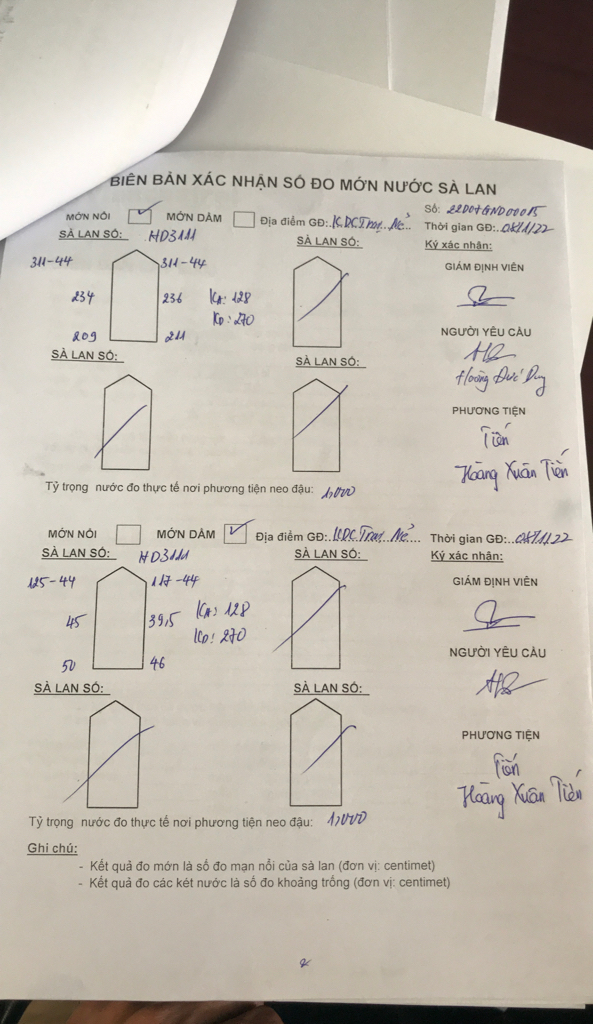 BIÊN BẢN XÁC NHẬN SỐ ĐO MỚN NƯỚC SÀ LAN
Số: 22D07GND00015
MỚN NỔI MỚN DẦM Địa điểm GĐ: K.DC Thời gian GĐ: /22
SÀ LAN SỐ: HD3111 SÀ LAN SỐ: Ký xác nhận:
311-44 311-44 GIÁM ĐỊNH VIÊN
234 236 KA: 128
KD: 270
209 211 NGƯỜI YÊU CẦU
SÀ LAN SỐ: SÀ LAN SỐ:
Hoàng Đức Duy
PHƯƠNG TIỆN
Tiến
Hoàng Xuân Tiến
Tỷ trọng nước đo thực tế nơi phương tiện neo đậu: 1,000
MỚN NỔI MỚN DẦM Địa điểm GĐ: Thời gian GĐ: /22
SÀ LAN SỐ: HD3111 SÀ LAN SỐ: Ký xác nhận:
125-44 117-44 GIÁM ĐỊNH VIÊN
45 39,5 KA: 128
KD: 270
50 46 NGƯỜI YÊU CẦU
SÀ LAN SỐ: SÀ LAN SỐ:
PHƯƠNG TIỆN
Tiến
Hoàng Xuân Tiến
Tỷ trọng nước đo thực tế nơi phương tiện neo đậu: 1,000
Ghi chú:
- Kết quả đo mớn là số đo mạn nổi của sà lan (đơn vị: centimet)
- Kết quả đo các két nước là số đo khoảng trống (đơn vị: centimet)